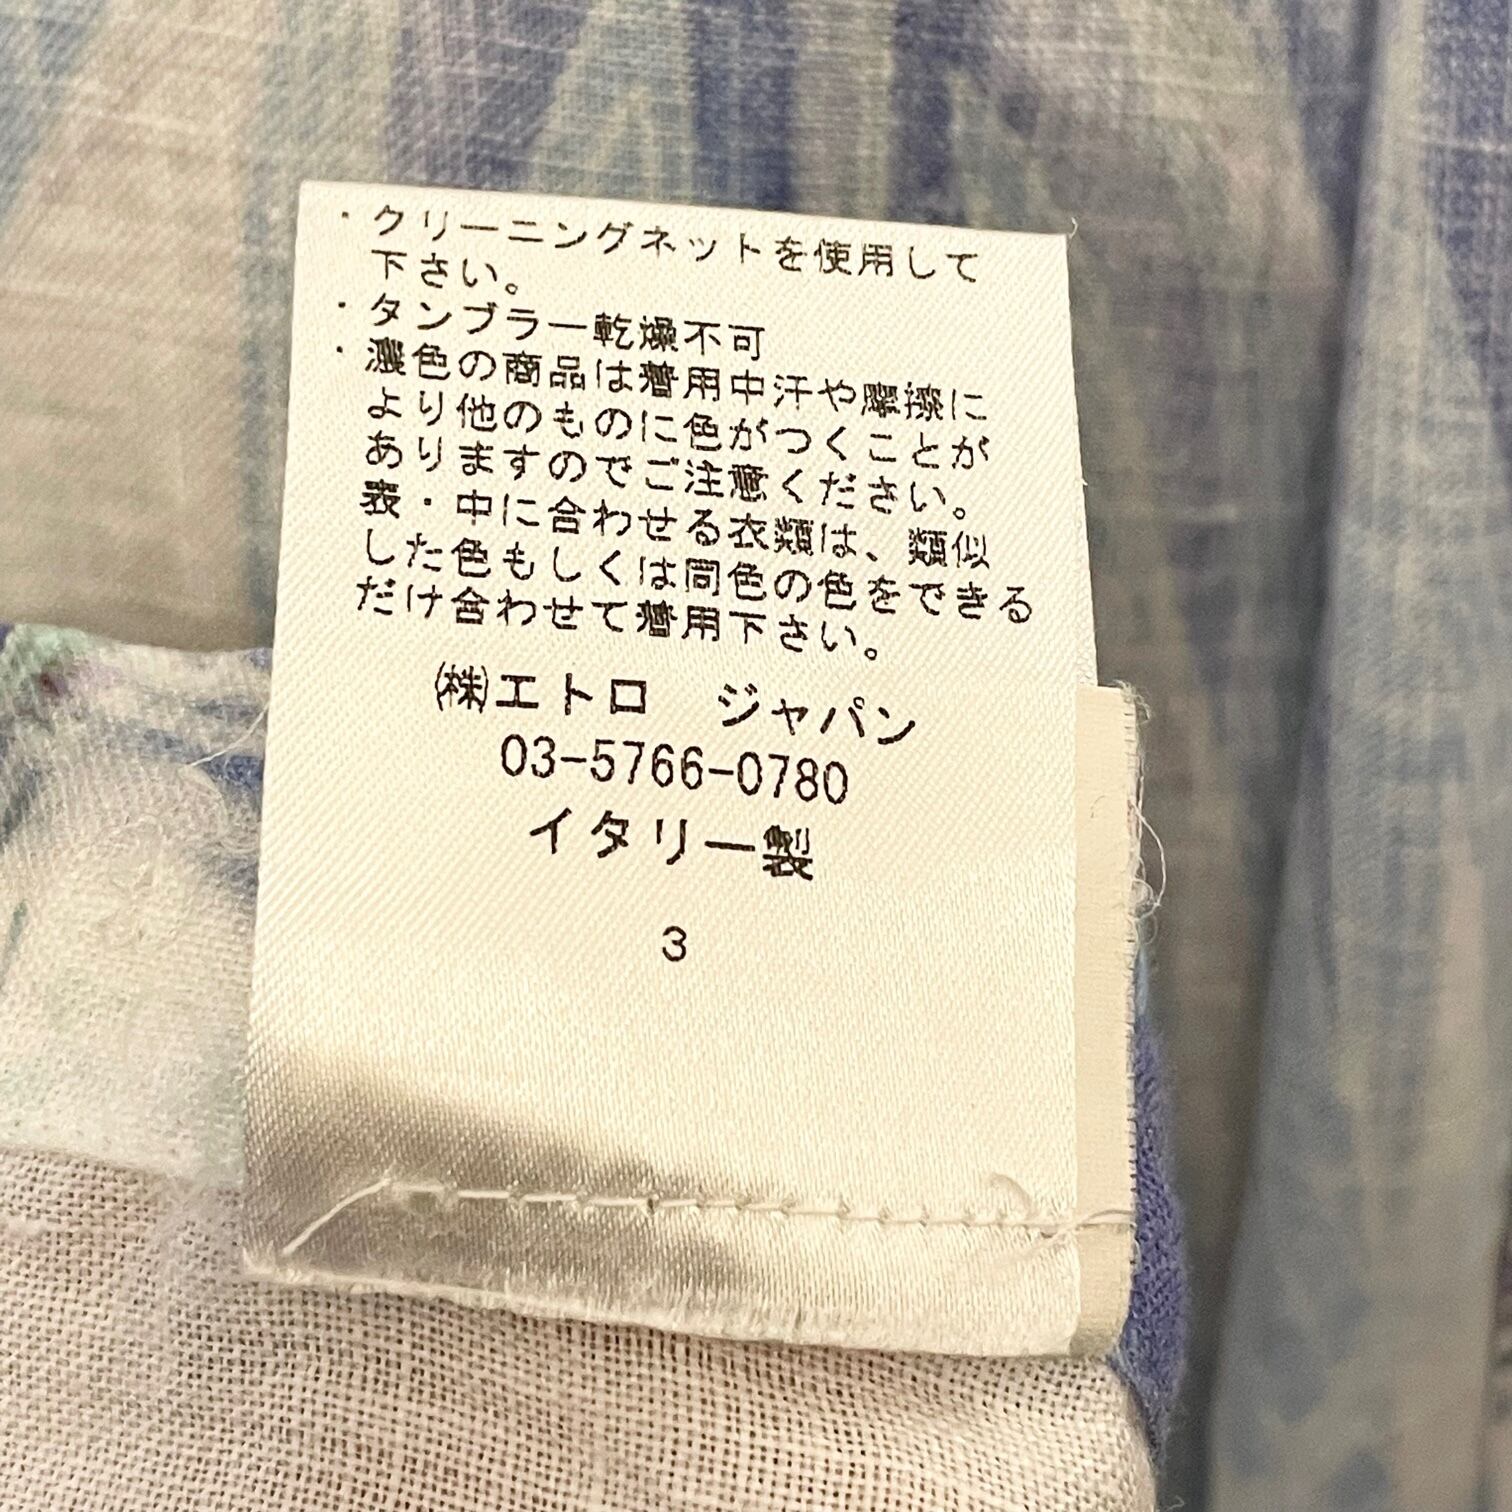 ・クリーニングネットを使用して
下さい。
・タンブラー乾燥不可
・濃色の商品は着用中汗や摩擦に
より他のものに色がつくことが
ありますのでご注意ください。
表・中に合わせる衣類は、類似
した色もしくは同色の色をできる
だけ合わせて着用下さい。
㈱エトロ ジャパン
03-5766-0780
イタリー製
3